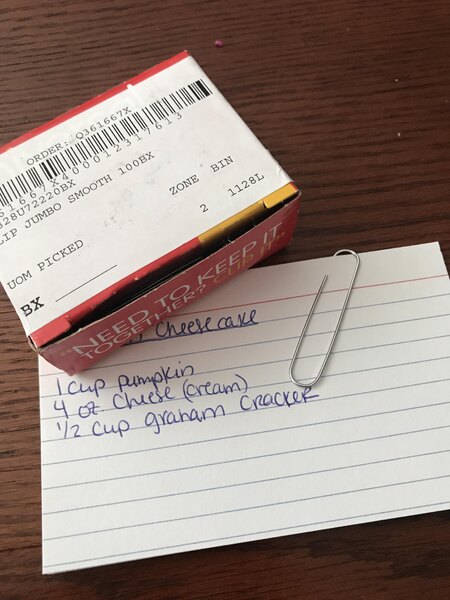 ORDER: Q361667X
X400012317613
828U72220BX
LIP JUMBO SMOOTH 100BX
ZONE BIN
2 1128L
UOM PICKED
BX
"NEED TO KEEP IT
TOGETHER? CLIP IT"
Cheesecake
1 cup pumpkin
4 oz Cheese (cream)
1/2 cup graham Cracker